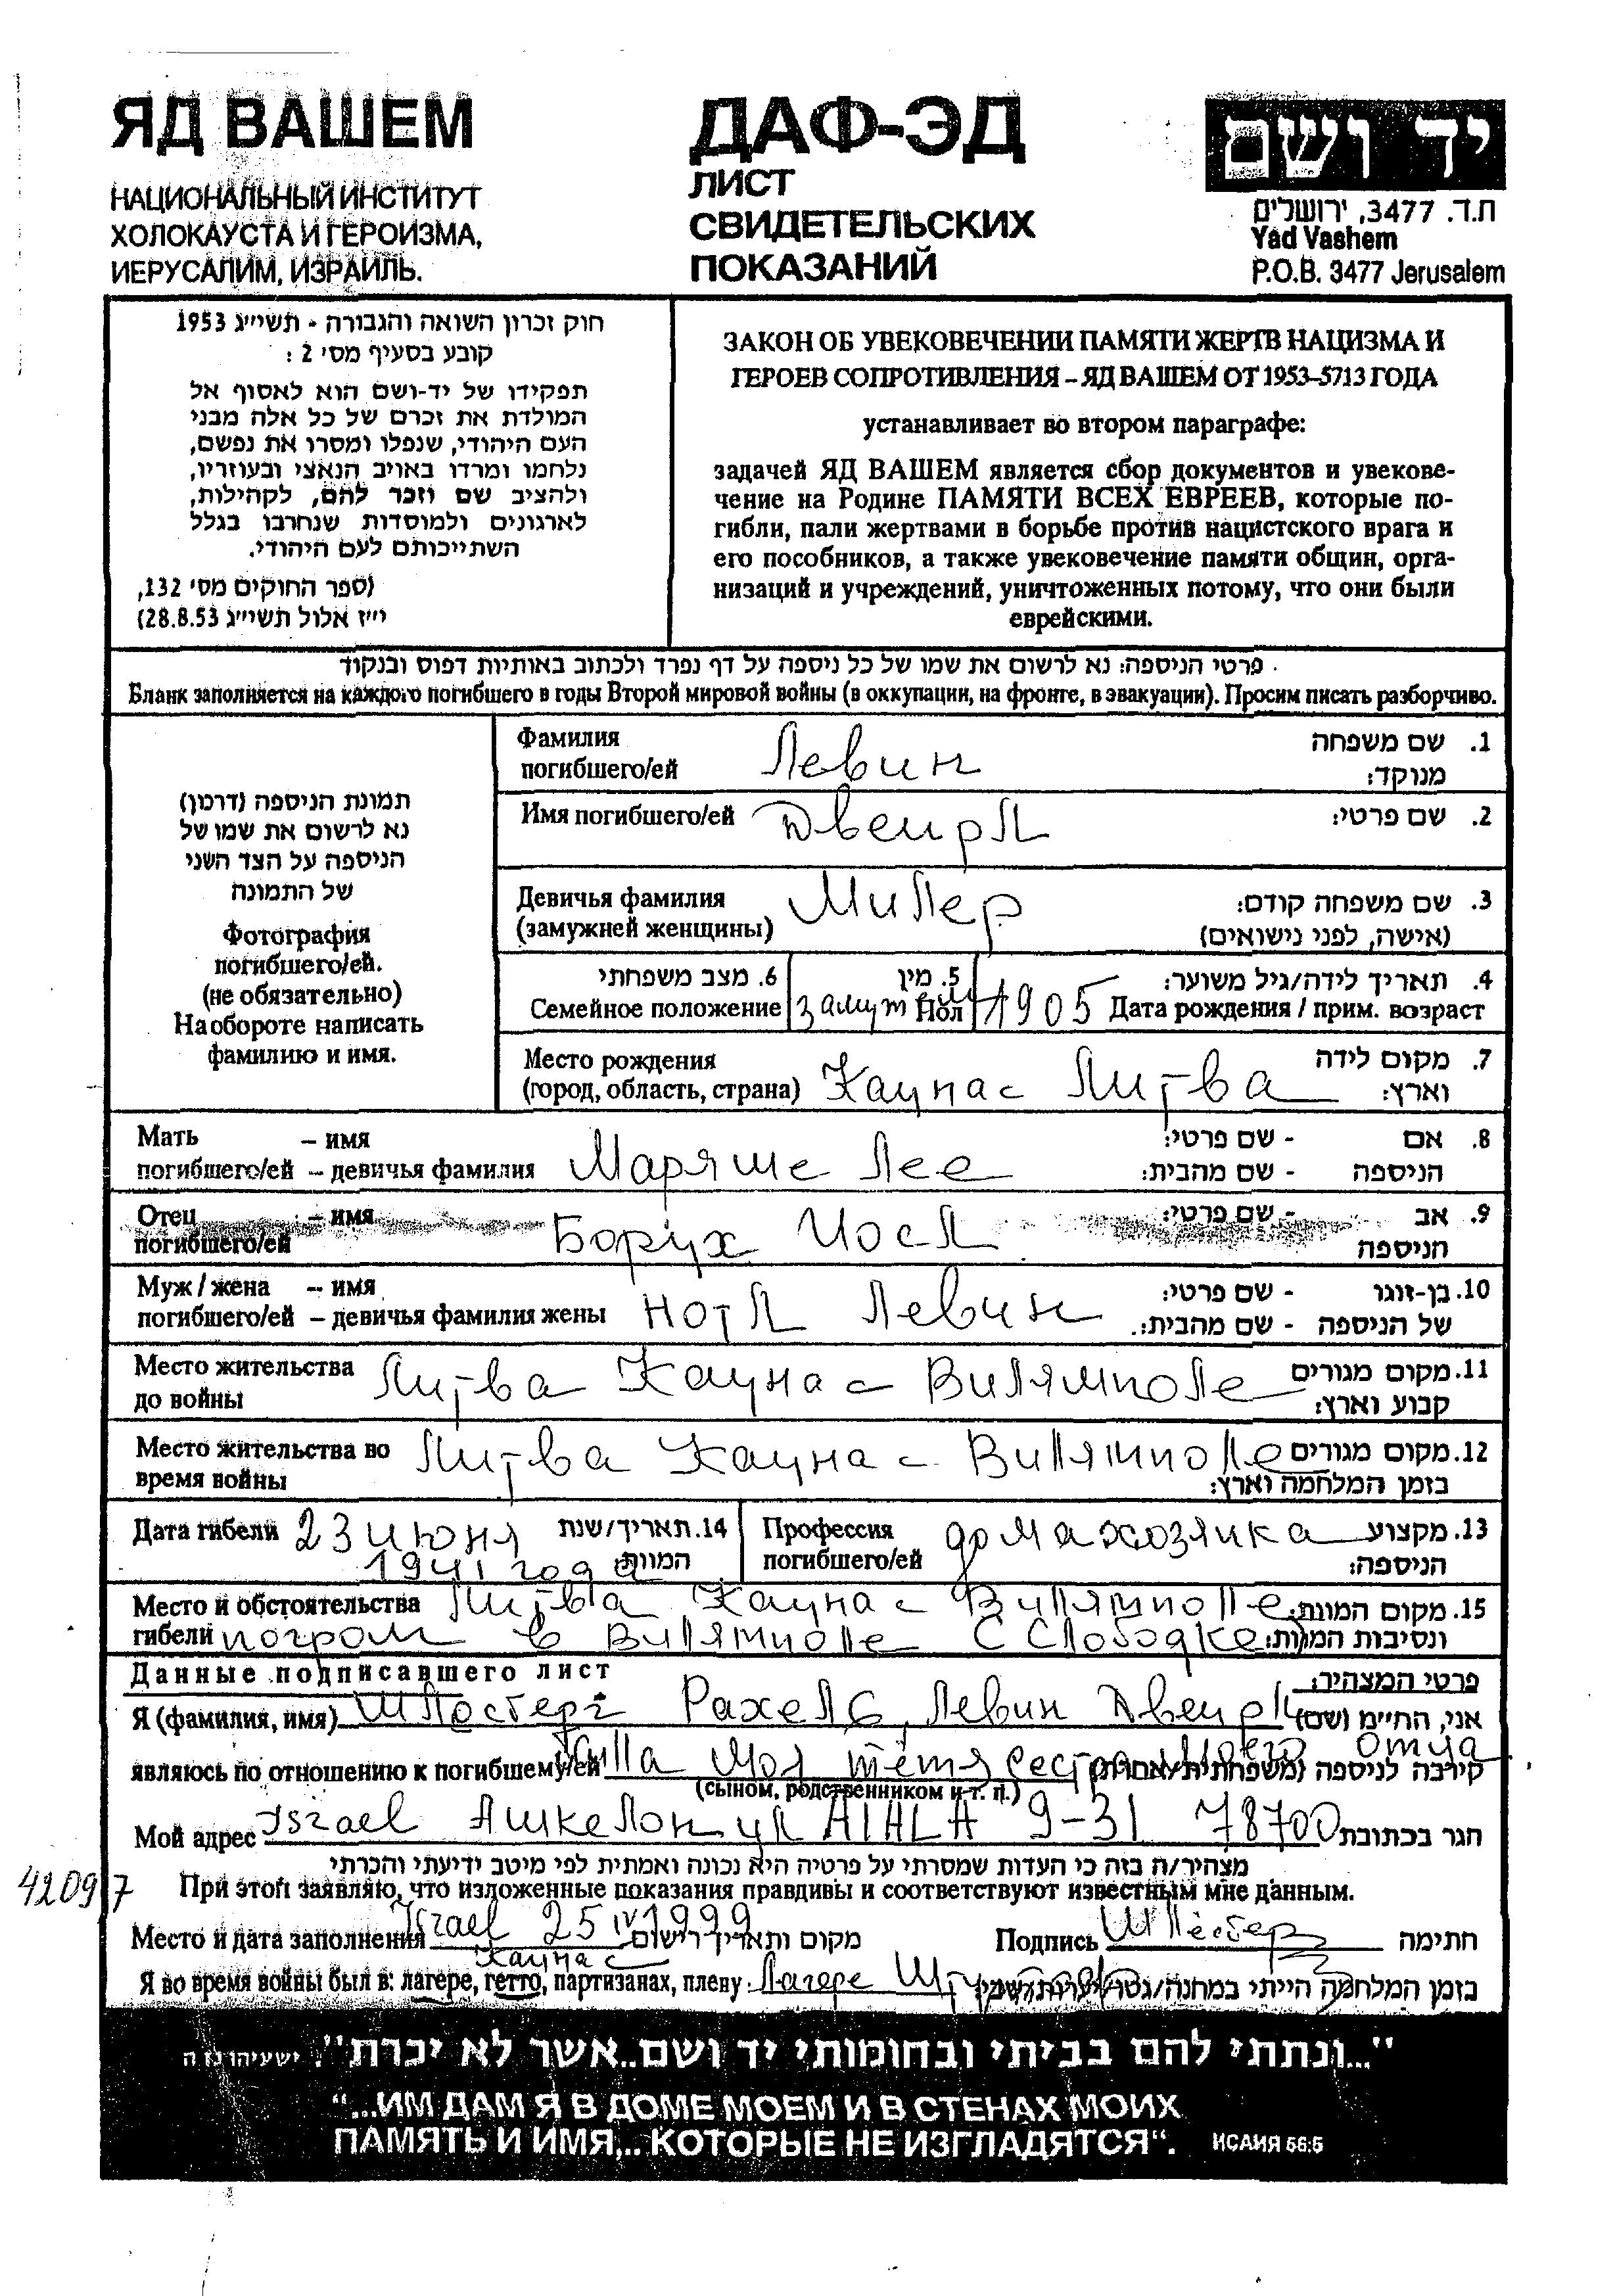 ЯД ВАШЕМ
НАЦИОНАЛЬНЫЙ ИНСТИТУТ
ХОЛОКАУСТА И ГЕРОИЗМА,
ИЕРУСАЛИМ, ИЗРАИЛЬ.
ДАФ-ЭД
ЛИСТ
СВИДЕТЕЛЬСКИХ
ПОКАЗАНИЙ
יד ושם
ת.ד. 3477, ירושלים
Yad Vashem
P.O.B. 3477 Jerusalem
חוק זכרון השואה והגבורה - תשי״ג 1953
קובע בסעיף מס׳ 2 :
תפקידו של יד-ושם הוא לאסוף אל
המולדת את זכרם של כל אלה מבני
העם היהודי, שנפלו ומסרו את נפשם,
נלחמו ומרדו באויב הנאצי ובעוזריו,
ולהציב שם וזכר להם, לקהילות,
לארגונים ולמוסדות שנחרבו בגלל
השתייכותם לעם היהודי.
(ספר החוקים מס׳ 132,
י״ז אלול תשי״ג 28.8.53)
ЗАКОН ОБ УВЕКОВЕЧЕНИИ ПАМЯТИ ЖЕРТВ НАЦИЗМА И
ГЕРОЕВ СОПРОТИВЛЕНИЯ – ЯД ВАШЕМ ОТ 1953–5713 ГОДА
устанавливает во втором параграфе:
задачей ЯД ВАШЕМ является сбор документов и увекове-
чение на Родине ПАМЯТИ ВСЕХ ЕВРЕЕВ, которые по-
гибли, пали жертвами в борьбе против нацистского врага и
его пособников, а также увековечение памяти общин, орга-
низаций и учреждений, уничтоженных потому, что они были
еврейскими.
פרטי הניספה: נא לרשום את שמו של כל ניספה על דף נפרד ולכתוב באותיות דפוס ובנקוד
Бланк заполняется на каждого погибшего в годы Второй мировой войны (в оккупации, на фронте, в эвакуации). Просим писать разборчиво.
תמונת הניספה (דרכון)
נא לרשום את שמו של
הניספה על הצד השני
של התמונה
Фотография
погибшего/ей.
(не обязательно)
На обороте написать
фамилию и имя.
Фамилия Левин 1. שם משפחה
погибшего/ей מנוקד:
Имя погибшего/ей Двейрл 2. שם פרטי:
Девичья фамилия Милер 3. שם משפחה קודם:
(замужней женщины) (אישה, לפני נישואים)
6. מצב משפחתי 5. מין 4. תאריך לידה/גיל משוער:
Семейное положение замужем Пол 1905 Дата рождения / прим. возраст
Место рождения 7. מקום לידה
(город, область, страна) Каунас Литва וארץ:
Мать – имя 8. אם - שם פרטי:
погибшего/ей – девичья фамилия Маряше Лее הניספה - שם מהבית:
Отец – имя 9. אב - שם פרטי:
погибшего/ей Борух Иосл הניספה
Муж / жена – имя 10. בן-זוגו - שם פרטי:
погибшего/ей – девичья фамилия жены Нотл Левин של הניספה - שם מהבית:
Место жительства Литва Каунас Вилямполе 11. מקום מגורים
до войны קבוע וארץ:
Место жительства во Литва Каунас Вилямполе 12. מקום מגורים
время войны בזמן המלחמה וארץ:
Дата гибели 23 июня 14. תאריך/שנת
1941 года המוות:
Профессия домахозяика 13. מקצוע
погибшего/ей הניספה:
Место и обстоятельства Литва Каунас Вилямполе 15. מקום המוות
гибели погром в Вилямполе Слободке ונסיבות המוות:
Данные подписавшего лист פרטי המצהיר:
Я (фамилия, имя) Рахель Левин Двейрл אני, החיימ (שם)
являюсь по отношению к погибшему/ей моя тётя сестра моего отца קירבה לניספה (משפחתית/אחרת)
(сыном, родственником и т. п.)
Мой адрес Israel Ашкелон ул AIALA 9-31 78700 הגר בכתובת
מצהיר/ה בזה כי העדות שמסרתי על פרטיה היא נכונה ואמתית לפי מיטב ידיעתי והכרתי
42097
При этом заявляю, что изложенные показания правдивы и соответствуют известным мне данным.
Место и дата заполнения Israel 25 IV 1999 מקום ותאריך רישום Подпись חתימה
Каунас
Я во время войны был в: лагере, гетто, партизанах, плену Лагере בזמן המלחמה הייתי במחנה/גטו
״...ונתתי להם בביתי ובחומותי יד ושם..אשר לא יכרת״. ישעיהו נו ה
“...ИМ ДАМ Я В ДОМЕ МОЕМ И В СТЕНАХ МОИХ
ПАМЯТЬ И ИМЯ,.. КОТОРЫЕ НЕ ИЗГЛАДЯТСЯ“. ИСАИЯ 56:5